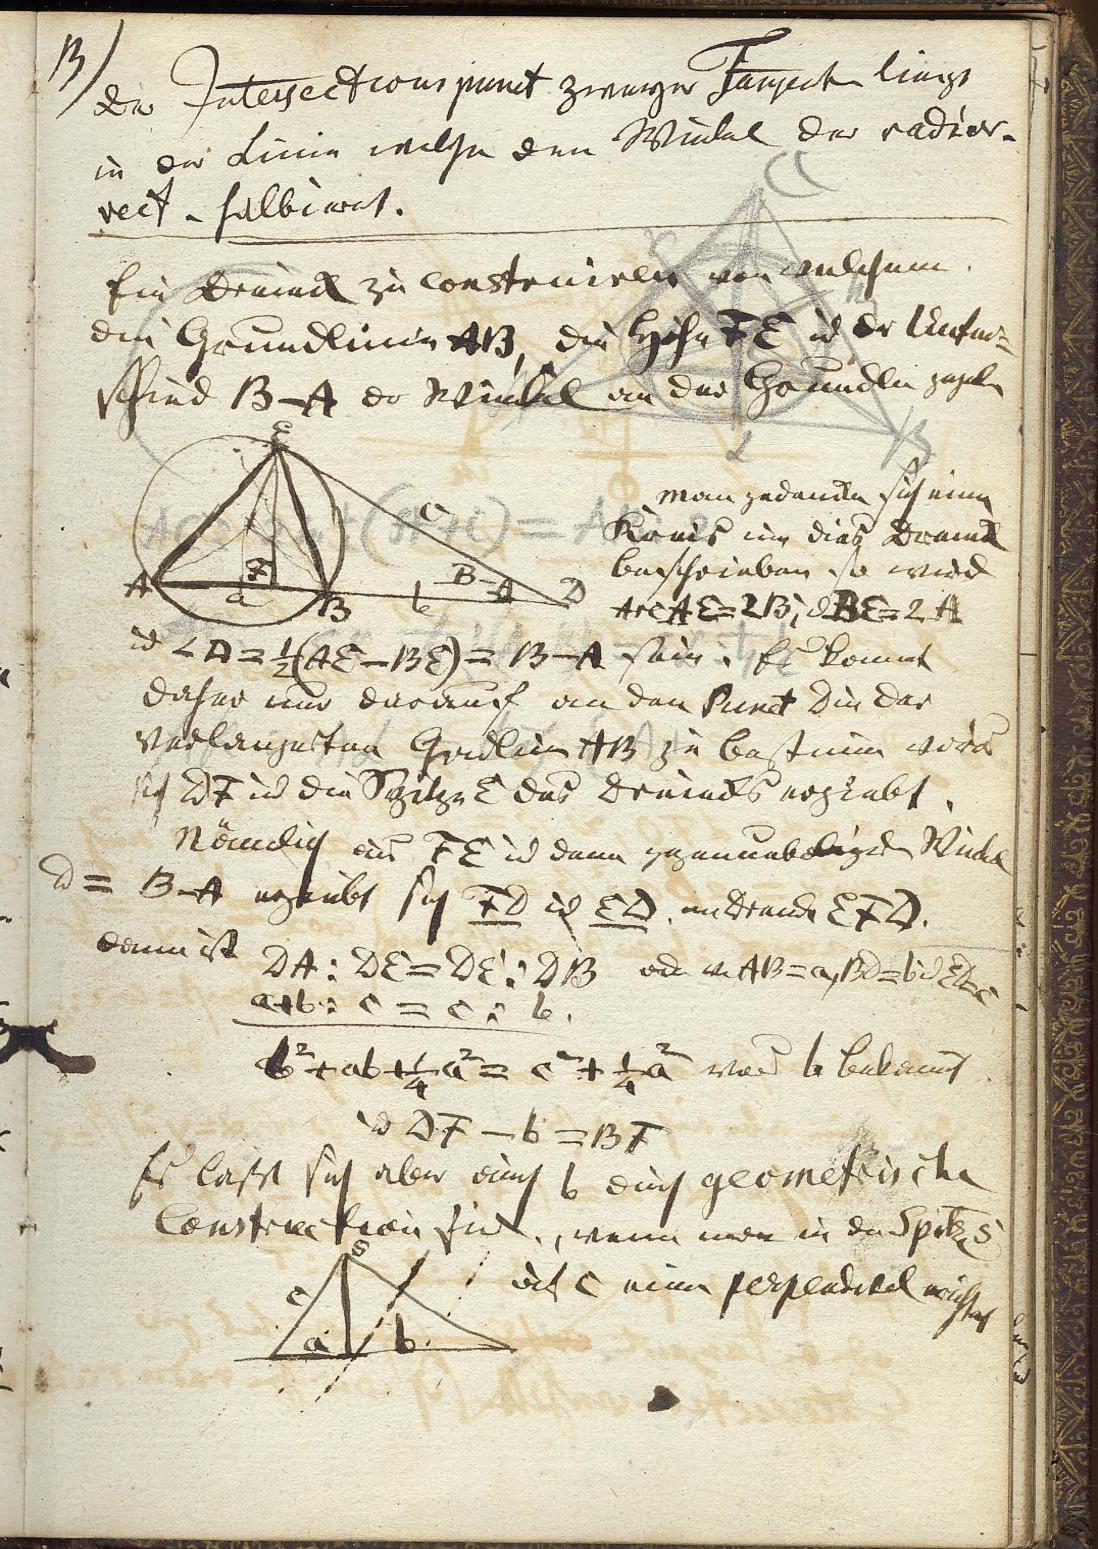 13)
der Intersectionspunct zweyer Tangent. liegt
in der Linie welche den Winkel der radior.
vect. halbirt.
Ein Dreieck zu construiren von welchem
die Grundlinie AB, die Höhe FE ud der Unter=
schied B–A der Winkel an der Grundlin gegeb
E
C
A
F
a
B
b
B–A
D
man gedenke sich einen
Kreis um dies Dreieck
beschrieben so wird
Arc AE = 2B, ud BE = 2A
ud ∠D = ½(AE – BE) = B–A sein. Es kommt
daher nur darauf an den Punct D in der
verlangerten Grundlin AB zu bestimm
DF ud die Spitze E des Dreiecks ergiebt.
Nämlich aus FE ud dem gegenueberliegnd Winkel
D = B–A ergiebt sich FD ud ED, im Dreieck EFD.
dann ist DA : DE = DE : DB od AB = a, BD = b ud ED = c
a+b : c = c : b.
b² + ab + ¼a² = c² + ¼a² b bekannt
ud DF – b = BF
Es lasst sich aber auch b durch geometrische
Construction find., wenn man in der Spitze S
auf c einen perpendikel errichtet
S
c
a
b.